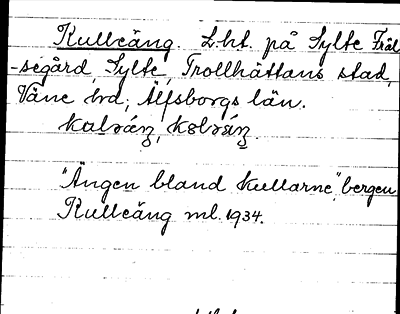 Kulleäng. L.ht. på Sylte Fräl
-segård, Sylte, Trollhättans stad,
Väne hrd, Älfsborgs län.
"Ängen bland kullarne", bergen
Kulleäng ml. 1934.